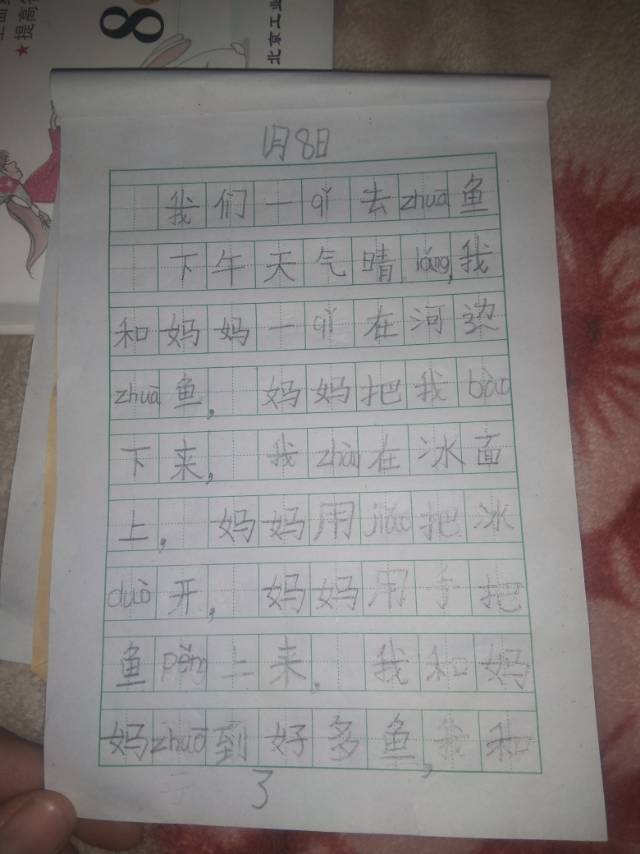 北京工业
★提高
8
1月8日
我们一qǐ去zhuā鱼
下午天气晴lǎng,我
和妈妈一qǐ在河边
zhuā鱼,妈妈把我bào
下来,我zhàn在冰面
上,妈妈用jiǎo把冰
duò开,妈妈用手把
鱼pěng上来,我和妈
妈zhuā到好多鱼,我和
3